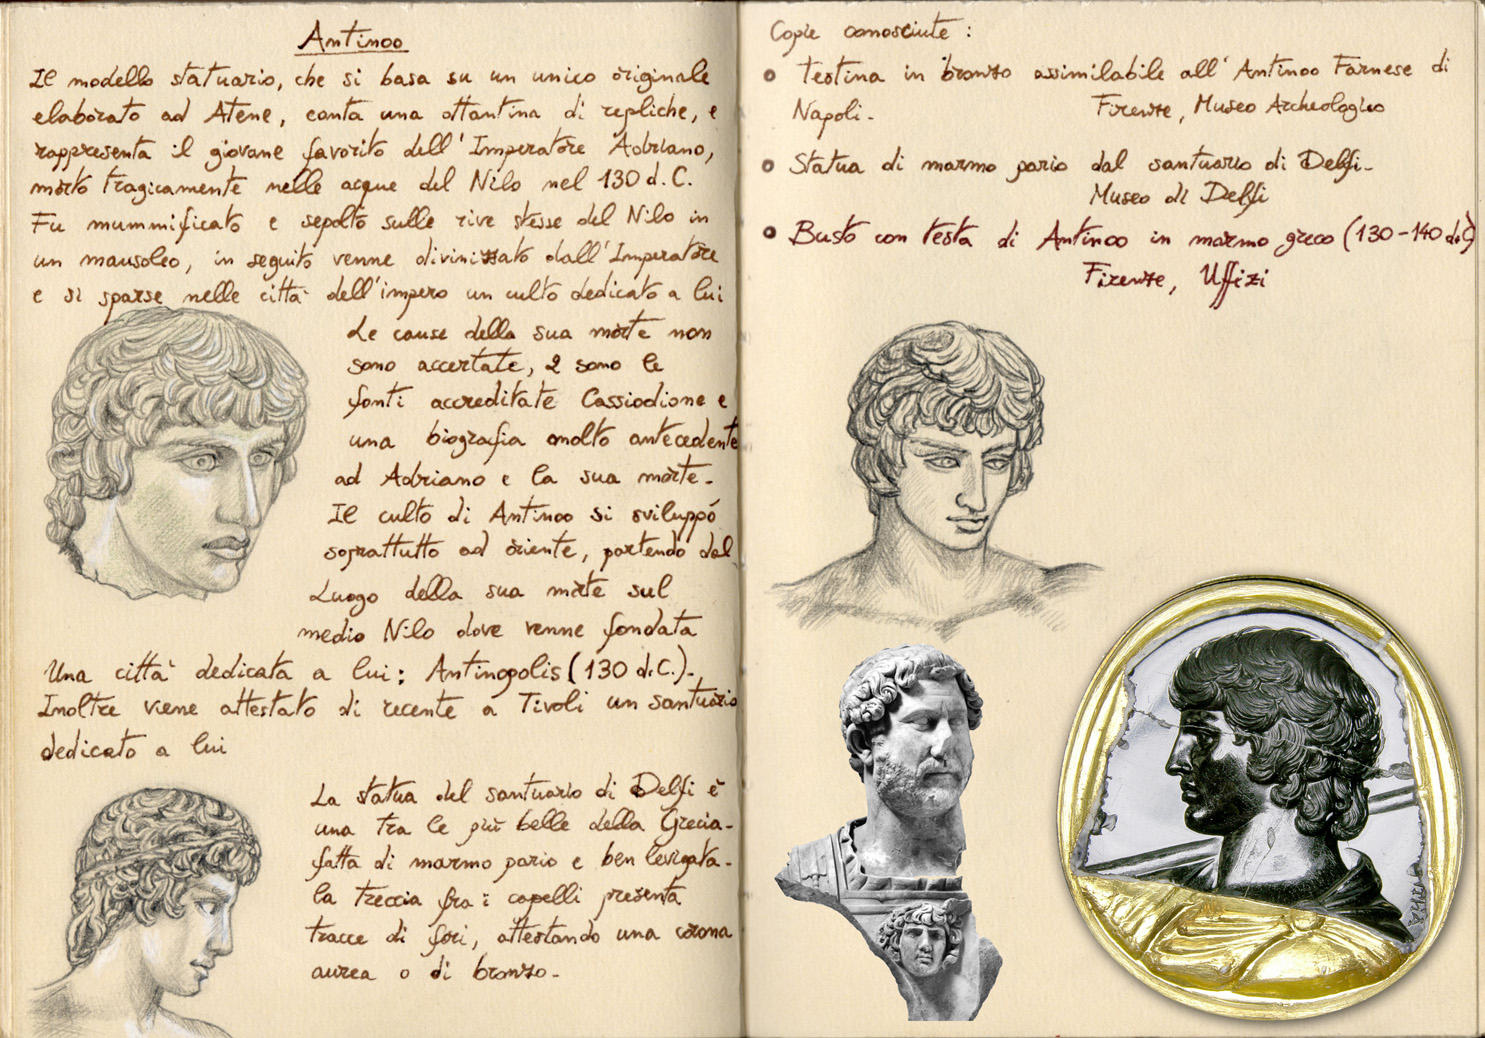 Antinoo
Il modello statuario, che si basa su un unico originale
elaborato ad Atene, conta una ottantina di repliche, e
rappresenta il giovane favorito dell'Imperatore Adriano,
morto tragicamente nelle acque del Nilo nel 130 d.C.
Fu mummificato e sepolto sulle rive stesse del Nilo in
un mausoleo, in seguito venne divinizzato dall'Imperatore
e si sparse nelle città dell'impero un culto dedicato a lui
Le cause della sua morte non
sono accertate, 2 sono le
fonti accreditate Cassiodione e
una biografia molto antecedente
ad Adriano e la sua morte.
Il culto di Antinoo si sviluppó
soprattutto ad oriente, partendo dal
Luogo della sua morte sul
medio Nilo dove venne fondata
Una città dedicata a lui: Antinopolis (130 d.C.).
Inoltre viene attestato di recente a Tivoli un santuario
dedicato a lui
La statua del santuario di Delfi è
una tra le più belle della Grecia.
fatta di marmo pario e ben levigata.
la treccia fra i capelli presenta
tracce di fori, attestando una corona
aurea o di bronzo.
Copie conosciute:
Testina in bronzo assimilabile all'Antinoo Farnese di
Napoli. Firenze, Museo Archeologico
Statua di marmo pario dal santuario di Delfi.
Museo di Delfi
Busto con testa di Antinoo in marmo greco (130-140 d.C)
Firenze, Uffizi